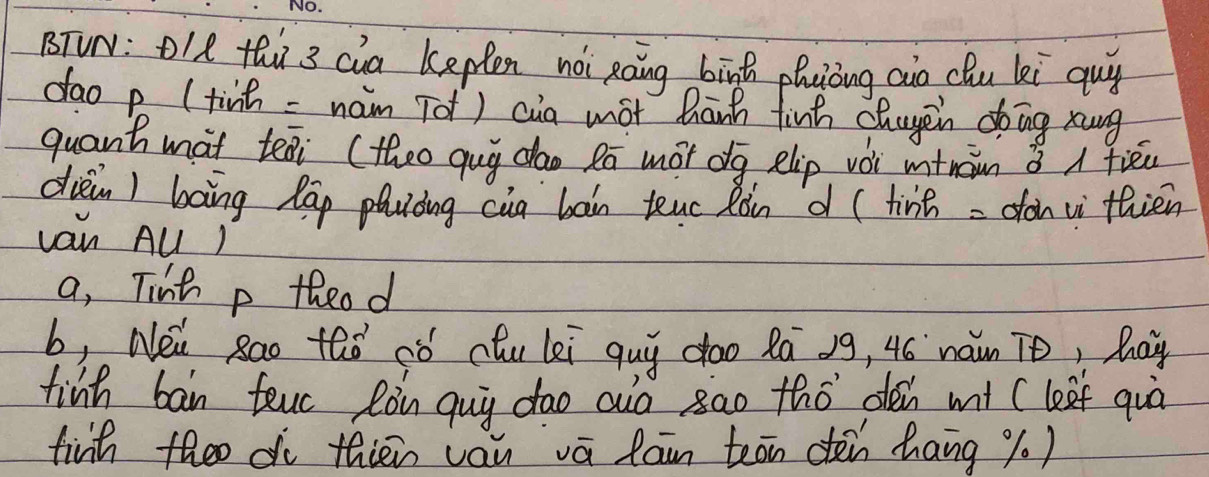 No.
BTVN: Đ/l thứ 3 của Kepler nói rằng bình phương của chu kì quỹ
đạo p (tính = năm TĐ) của một hành tinh chuyển động xung
quanh mặt trời (theo quỹ đạo là một đg elip với mt nằm ở 1 tiêu
điểm) bằng lập phương của bán trục lớn d (tính = đơn vị thiên
văn AU)
a, Tính p theo d
b, Nếu sao thổ có chu kì quỹ đạo là 29,46 năm TĐ, hãy
tính bán trục lớn quỹ đạo của sao thổ đến mt (kết quả
tính theo đv thiên văn và làm tròn đến hàng %)